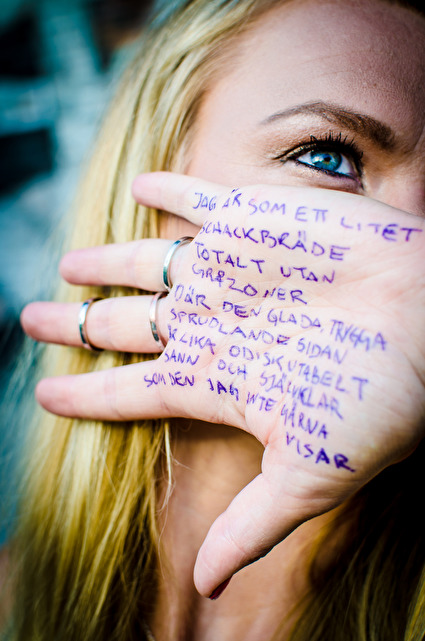 JAG ÄR SOM ETT LITET
SCHACKBRÄDE
TOTALT UTAN
GRÅZONER
DÄR DEN GLADA, TRYGGA
SPRUDLANDE SIDAN
ÄR LIKA ODISKUTABELT
SANN OCH SJÄLVKLAR
SOM DEN JAG INTE GÄRNA
VISAR